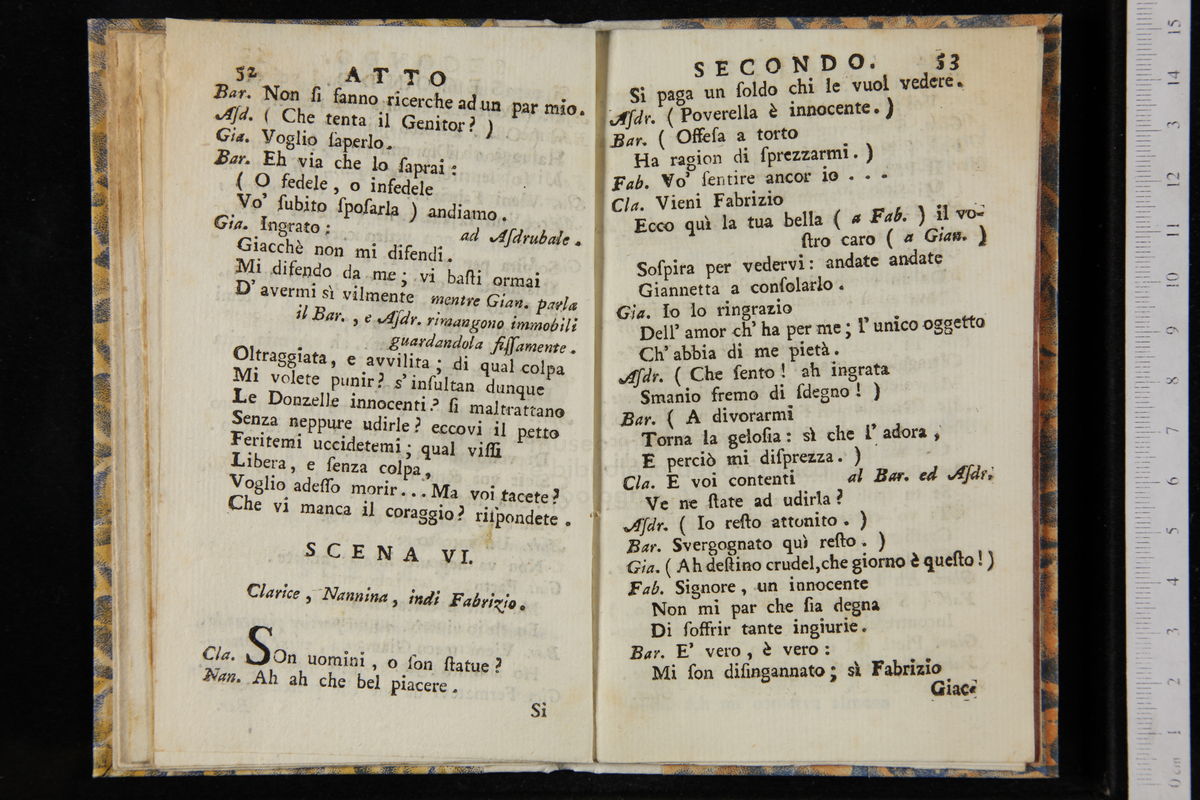 52 ATTO
Bar. Non ſi fanno ricerche ad un par mio.
Aſd. ( Che tenta il Genitor? )
Gia. Voglio ſaperlo.
Bar. Eh via che lo ſaprai:
( O fedele, o infedele
Vo' ſubito ſpoſarla ) andiamo.
Gia. Ingrato: ad Aſdrubale.
Giacchè non mi difendi.
Mi difendo da me; vi baſti ormai
D'avermi sì vilmente mentre Gian. parla
il Bar., e Aſdr. rimangono immobili
guardandola fiſſamente.
Oltraggiata, e avvilita; di qual colpa
Mi volete punir? s'inſultan dunque
Le Donzelle innocenti? ſi maltrattano
Senza neppure udirle? eccovi il petto
Feritemi uccidetemi; qual viſſi
Libera, e ſenza colpa,
Voglio adeſſo morir... Ma voi tacete?
Che vi manca il coraggio? riſpondete.
SCENA VI.
Clarice, Nannina, indi Fabrizio.
Cla. SOn uomini, o ſon ſtatue?
Nan. Ah ah che bel piacere.
Si
SECONDO. 53
Si paga un ſoldo chi le vuol vedere.
Aſdr. ( Poverella è innocente. )
Bar. ( Offeſa a torto
Ha ragion di ſprezzarmi. )
Fab. Vo' ſentire ancor io . . .
Cla. Vieni Fabrizio
Ecco quì la tua bella ( a Fab. ) il vo-
ſtro caro ( a Gian. )
Soſpira per vedervi: andate andate
Giannetta a conſolarlo.
Gia. Io lo ringrazio
Dell'amor ch'ha per me; l'unico oggetto
Ch'abbia di me pietà.
Aſdr. ( Che ſento! ah ingrata
Smanio fremo di ſdegno! )
Bar. ( A divorarmi
Torna la geloſia: sì che l'adora,
E perciò mi diſprezza. )
Cla. E voi contenti al Bar. ed Aſdr.
Ve ne ſtate ad udirla?
Aſdr. ( Io reſto attonito. )
Bar. Svergognato quì reſto. )
Gia. ( Ah deſtino crudel, che giorno è queſto! )
Fab. Signore, un innocente
Non mi par che ſia degna
Di ſoffrir tante ingiurie.
Bar. E' vero, è vero:
Mi ſon diſingannato; sì Fabrizio
Giac-